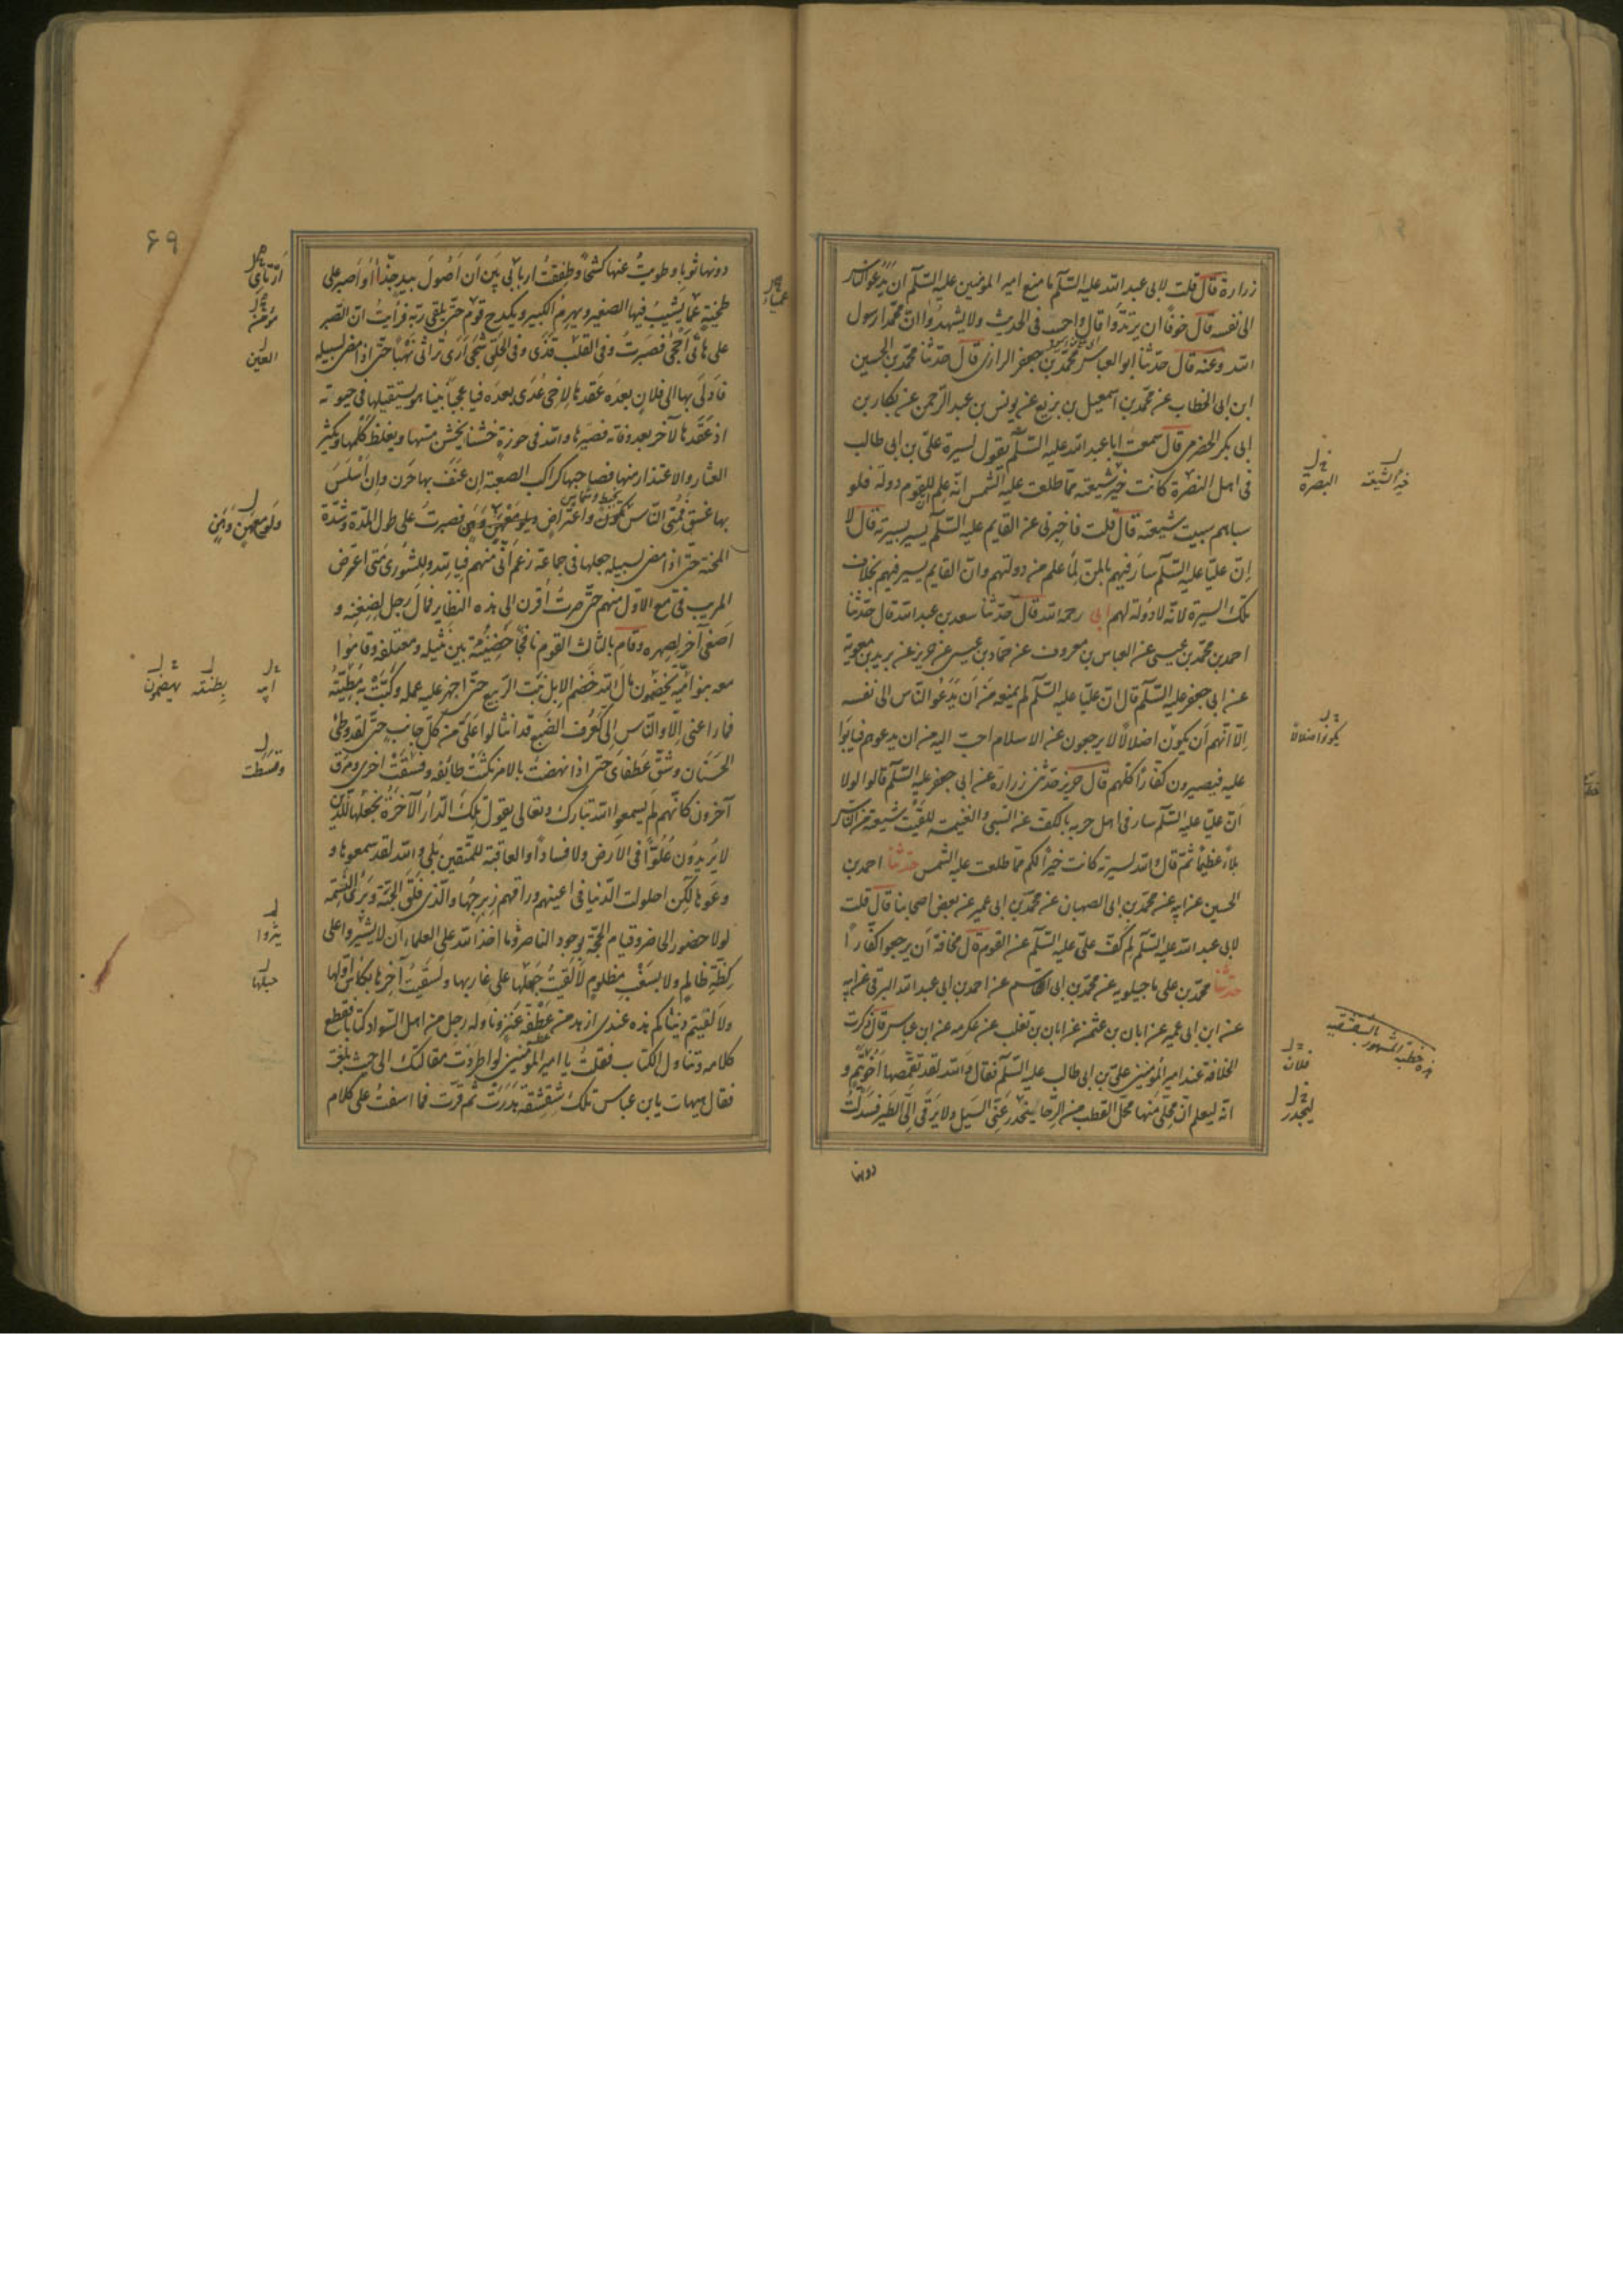 زرارة قال قلت لابی عبد الله علیه السّلم ما منع امیر المومنین علیه السّلم ان یَدعُو الناس
الی نفسه قال خوفًا ان یرتدّوا قال واحسب فی الحدیث ولا یشهدُوا انّ محمّدا رسول
الله وعنه قال حدّثنا ابو العباس محمّد بن جعفر الرازی قال حدّثنا محمّد بن الحسین
ابن ابی الخطاب عن محمّد بن اسمعیل بن بزیع عن یونس بن عبد الرّحمن عن بکار بن
ابی بکر الحضرمی قال سمعت ابا عبد الله علیه السّلم یقول لسیرة علیّ بن ابی طالب
فی اهل النصرة کانت خیر شیعته ممّا طلعت علیه الشمس انّه علم للقوم دولة فلو
سباهم سبیت شیعته قال قلت فاخبرنی عن القایم علیه السّلم یسیر بسیرته قال لا
انّ علیّا علیه السّلم سارَ فیهم بالمنّ لِمَا علم من دولتهم وانّ القایم یسیر فیهم بخلاف
تلک السیرة لانّه لا دولة لهم ابی رحمه الله قال حدّثنا سعد بن عبد الله قال حدّثنا
احمد بن محمّد بن عیسی عن العباس بن معروف عن حمّاد بن عیسی عن حریز عن برید بن معویة
عن ابی جعفر علیه السّلم قال انّ علیّا علیه السّلم لم یمنعه من اَن یَدعُو النّاس الی نفسه
الّا انّهم اَن یکون اضلالًا لا یرجعون عن الاسلام احبّ الیه من ان یدعوهم فیابَوا
علیه فیصیرون کفّارًا کلّهم قال حریز حدّثنی زرارة عن ابی جعفر علیه السّلم قال لولا
اَنّ علیّا علیه السّلم سار فی اهل حربه بالکفّ عن السّبی والغنیمة للَقیَت شیعته من النّاس
بلاءً عظیمًا ثمّ قال والله لسیرته کانت خیرًا لکم ممّا طلعت علیه الشمس حدّثنا احمد بن
الحسین عن ابیه عن محمّد بن ابی الصهبان عن محمّد بن ابی عمیر عن بعض اصحابنا قال قلت
لابی عبد الله علیه السّلم لِمَ کفّ علیّ علیه السّلم عن القوم قال مخافة اَن یرجعوا کفّارًا
حدّثنا محمّد بن علی ماجیلویه عن محمّد بن ابی القاسم عن احمد بن ابی عبد الله البرقی عن ابیه
عن ابن ابی عمیر عن ابان بن عثمن عن ابان بن تغلب عن عکرمه عن ابن عباس قال ذکرت
الخلافة عند امیر المؤمنین علیّ بن ابی طالب علیه السّلم فقال والله لقد تقمّصها اخو تیم و
انّه لیعلم انّ محلّی منها محلّ القطب من الرّحا ینحدر عَنّی السّیل ولا یَرقی الیّ الطیر فسَدلتُ
دونها
خیرًا لشیعته
البصرة
یکونوا ضلالًا
خطبه المشهور بالشقشقیه
فلان
لینحدر
۶۹
دونها ثوبًا وطویتُ عنها کشحًا وطفقتُ ارتأی بین اَن اَصُولَ بیدٍ جذّاءَ او اَصبر علی
طخیةٍ عمیا یشیبُ فیها الصغیر ویهرم الکبیر ویکدح قوم حتّی یلقی ربّه فرأیتُ انّ الصّبر
علی هاتی اَحجی فصَبرتُ وفی القلب قذی وفی الحلق شجی اَرَی تراثی نَهبًا حتّی اذا مضی لسبیله
فادلَی بها الی فلان بعدَه عَقَدها لاخی عَدی بعده فیا عجبا بینا هو یستقیلها فی حیوته
اذ عقدها لآخر بعد وفاته فصیّرها والله فی حوزةٍ خشنا یخشن مسّها ویغلظ کَلمها ویکثر
العثار والاعتذار منها فصاحبها کراکب الصعبة اِن عَنَفَ بها حَرَن وان اَسلَسَ
بها غسق فمُنی النّاس بتلوّن واعتراضٍ وبلوٍ مَعَ هَنٍ وهَنٍ فصبرتُ علی طول المدّة وشدّة
المحنة حتّی اذا مضی لسبیله جعلها فی جماعةٍ زعم انّی منهم فیا لله وللشُّوری متی اعترض
الریب فیّ مع الاوّل منهم حتّی صرتُ اُقرن الی هذه النظایر فمال رجل لضغنه و
اَصغی آخر لصهره وقام ثالث القوم نافجًا حضنَیه بین نثیله ومعتلفه وقاموا
معه بنو امیّة یخضمون مال الله خَضم الابل نبت الربیع حتّی اجهز علیه عمله وکبَت به مطیّته
فما راعنی الّا والنّاس الیّ کعُرف الضَّبُع قد انثالوا عَلیَّ من کلّ جانب حتّی لقد وُطِئ
الحَسَنان وشُقّ عطفای حتّی اذا نهضتُ بالامر نکثت طائفه وفسقت اخری ومرق
آخرون کانّهم لم یسمعوا الله تبارک وتعالی یقول تلک الدّار الآخرة نجعلها للذین
لا یریدُون عُلوًّا فی الارض ولا فسادًا والعاقبة للمتّقین بلی والله لقد سمعوها و
وعَوها لکن احلولت الدّنیا فی اعینهم وراقهم زبرجُها والّذی فلق الحبّة وبَرَئ النّسمة
لولا حضور الحاضر وقیام الحجّة بوجود الناصر وما اخذ الله علی العلماء ان لا یقرّوا علی
کِظّة ظالم ولا سَغَبِ مظلوم لَاَلقیتُ حَبلها علی غاربها ولسقیتُ آخرها بکاس اوّلها
ولالفیتم دنیاکم هذه عندی ازهد من عَفطة عنز وناوله رجل من اهل السّواد کتابًا فقطع
کلامه وتناول الکتاب فقلتُ یا امیر المؤمنین لو اطردتَ مقالتک الی حیث بلغتَ
فقال هیهات یا بن عباس تلک شقشقة هَدَرت ثمّ قرّت فما اسفتُ علی کلام
عمیاء
ارتای
مؤمن
العین
وبلو مع هن وهن
ابیه
بطنته
یهضمون
وقسطت
حبلها